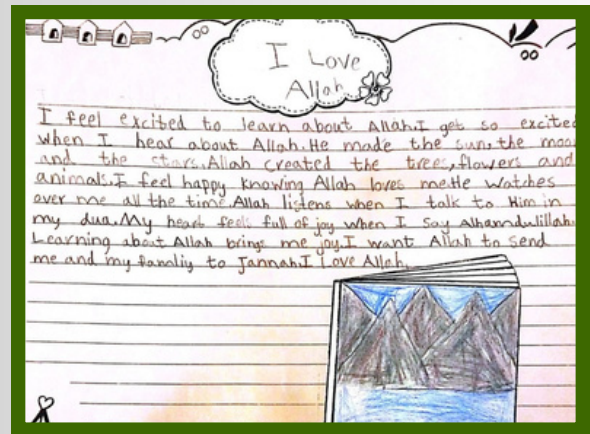 I Love
Allah
I feel excited to learn about Allah.I get so excited
when I hear about Allah.He made the sun, the moo
and the stars.Allah created the trees,flowers and
animals.I feel happy knowing Allah loves me.He watches
over me all the time.Allah listens when I talk to Him in
my dua.My heart feels full of joy when I say Alhamdulillah.
Learning about Allah brings me joy.I want Allah to send
me and my famliy to Jannah.I Love Allah.